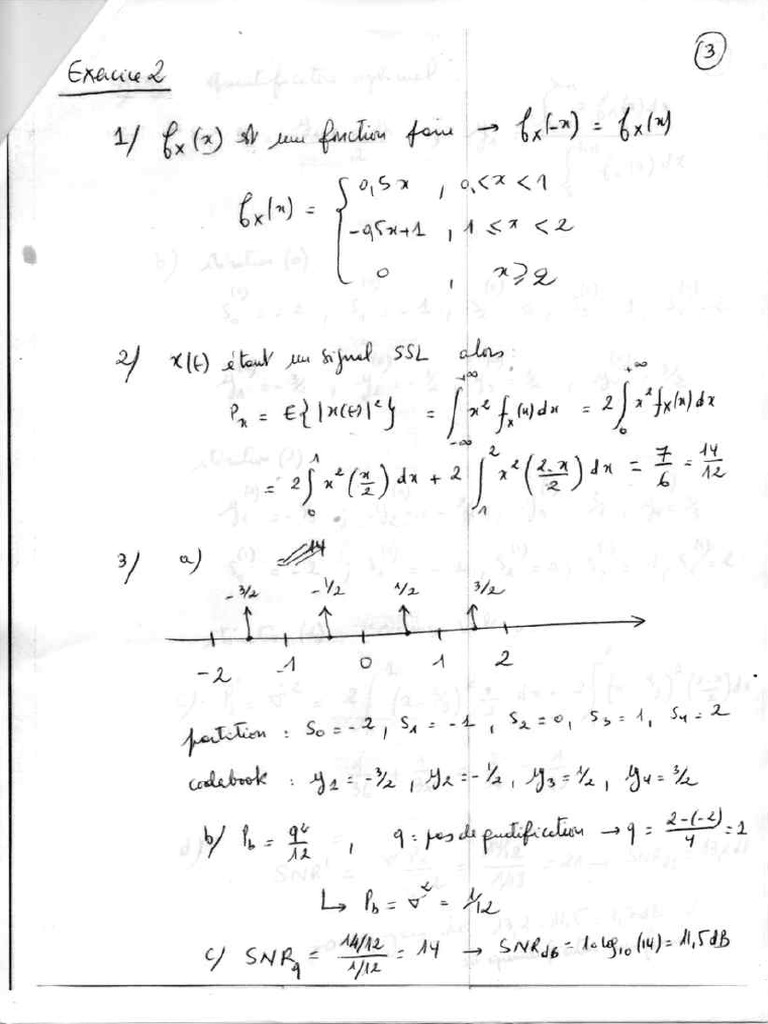 3
Exercice 2
1/ fx(x) est une fonction paire → fx(-x) = fx(x)
fx(x) = { 0,5x , 0 < x < 1
-0,5x+1 , 1 ≤ x < 2
0 , x ≥ 2
2/ x(t) étant un signal SSL alors:
Px = E{|x(t)|²} = ∫_{-∞}^{+∞} x² fx(x) dx = 2∫_0^{+∞} x² fx(x) dx
= 2∫_0^1 x² (x/2) dx + 2∫_1^2 x² (2-x/2) dx = 7/6 = 14/12
3/ a)
-3/2 -1/2 1/2 3/2
-2 -1 0 1 2
partition : S0 = -2, S1 = -1, S2 = 0, S3 = 1, S4 = 2
codebook : y1 = -3/2, y2 = -1/2, y3 = 1/2, y4 = 3/2
b/ Pb = q²/12 , q = pas de quantification → q = 2-(-2)/4 = 1
↳ Pb = σ² = 1/12
c/ SNRq = 14/12 / 1/12 = 14 → SNRdB = 10log10(14) = 11,5dB